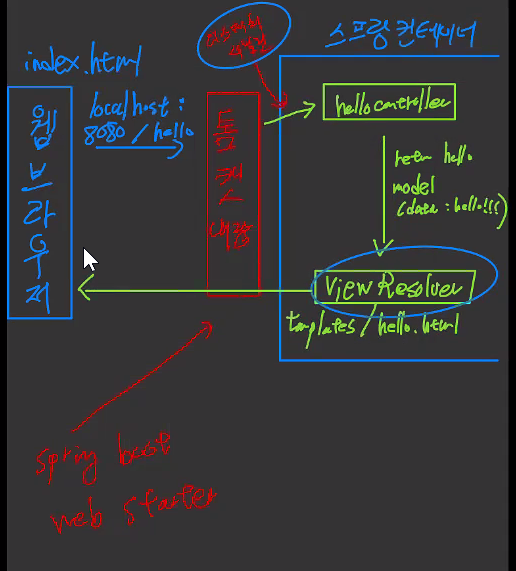 index.html
스프링 컨테이너
디스패처
서블릿
웹브라우저
localhost:
8080/hello
톰켓 내장
hellocontroller
return hello
model
(data:hello!!!)
ViewResolver
templates/hello.html
spring boost
web starter